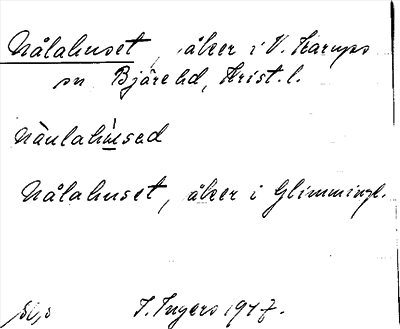 Nålahuset, åker i V. Karups
sn Bjäre hd, Krist. l.
nàulahúsed
Nålahuset, åker i Glimminge.
I. Ingers 1947.